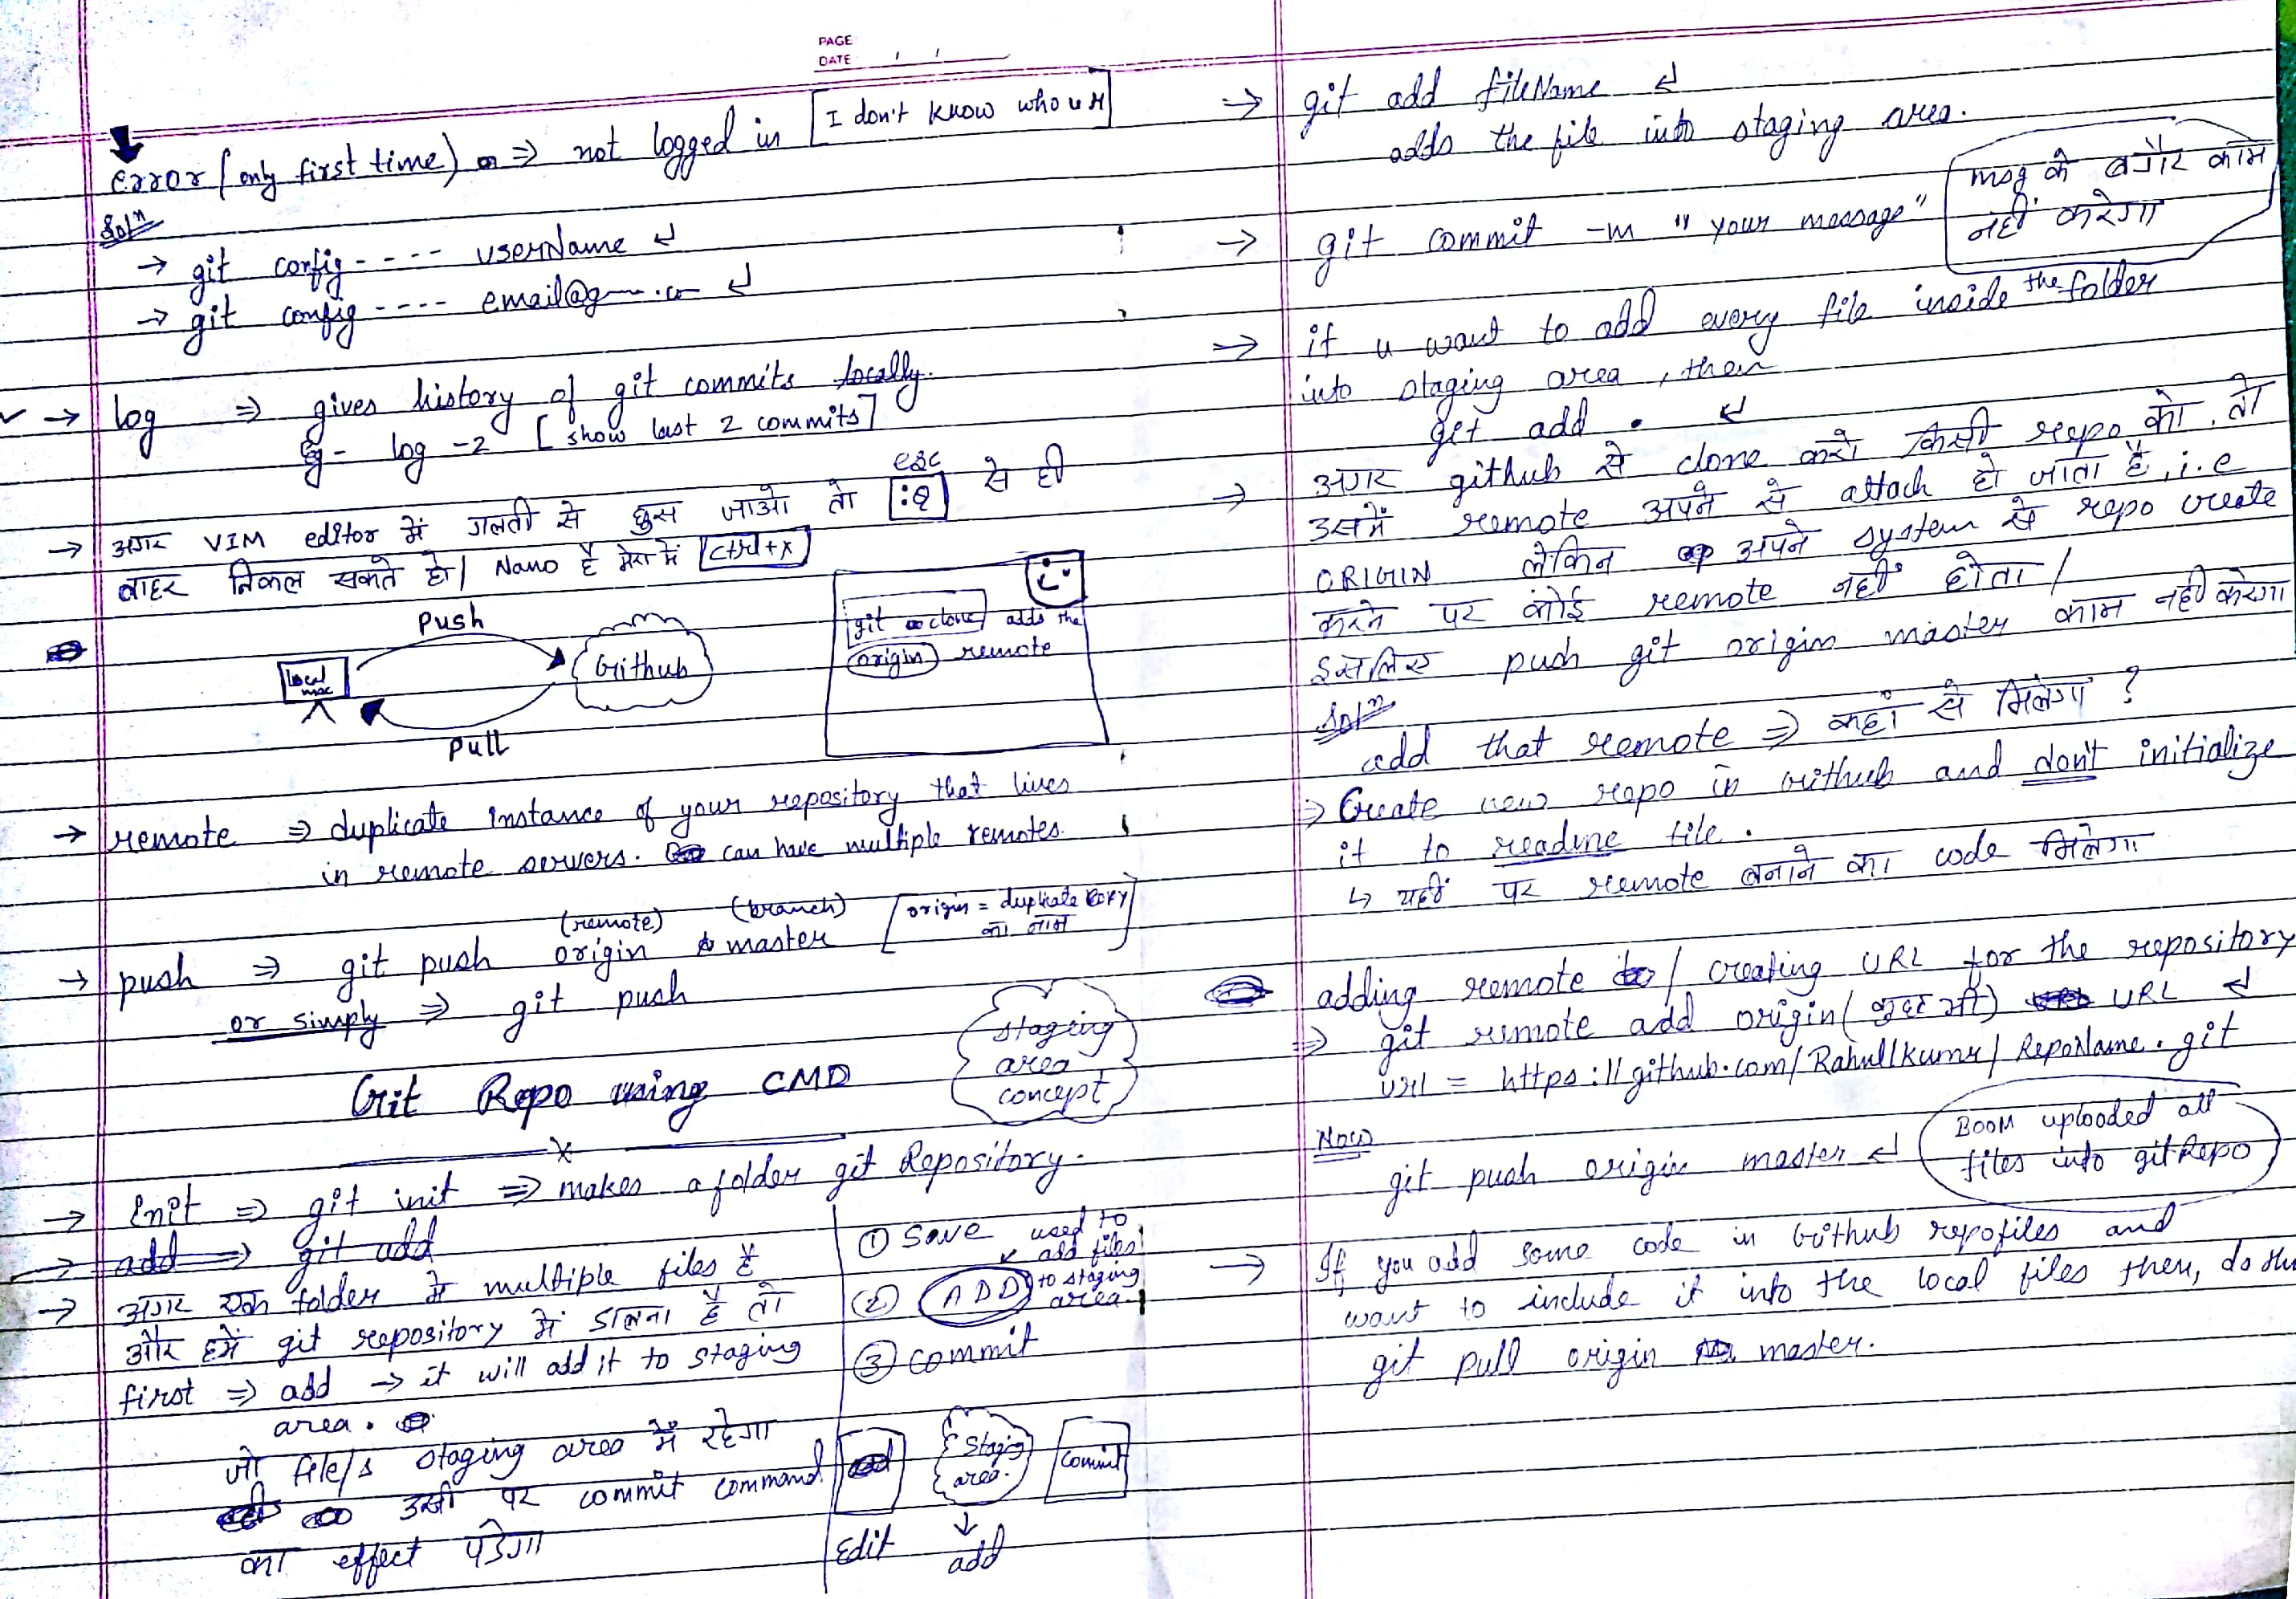 PAGE
DATE
error (only first time) ⇒ not logged in [I don't know who u r]
Solⁿ
→ git config - - - - userName ↵
→ git config - - - - email@g .co ↵
→ log ⇒ gives history of git commits locally.
eg - log -2 [show last 2 commits]
→ अगर VIM editor में गलती से घुस जाओ तो esc :q से ही
बाहर निकल सकते हो | Nano है मेरा में ctrl+x
push
local mac
Github
pull
git clone adds the
origin remote
→ remote ⇒ duplicate instance of your repository that lives
in remote servers. can have multiple remotes.
(remote) (branch)
→ push ⇒ git push origin master [origin = duplicate copy
का नाम]
or simply ⇒ git push
staging
area
concept
Git Repo using CMD
→ Init ⇒ git init ⇒ makes a folder git Repository.
→ add ⇒ git add
→ अगर एक folder में multiple files है
और हमें git repository में डालना है तो
first ⇒ add → it will add it to staging
area.
जो file/s staging area में रहेगा
उसी पर commit command
का effect पड़ेगा
① Save
② ADD
used to
add files
to staging
area
③ commit
staging
area.
commit
Edit
add
→ git add fileName ↵
adds the file into staging area.
→ git commit -m "your message"
msg के बगैर काम
नहीं करेगा
→ if u want to add every file inside the folder
into staging area, then
get add . ↵
→ अगर github से clone करो किसी repo को, तो
उसमें remote अपने से attach हो जाता है, i.e
ORIGIN लेकिन अपने system से repo create
करने पर कोई remote नहीं होता |
इसलिए push git origin master काम नहीं करेगा
Solⁿ
add that remote ⇒ कहां से मिलेगा ?
⇒ Create new repo in Github and don't initialize
it to readme file.
↳ यहीं पर remote बनाने का code मिलेगा
adding remote / creating URL for the repository
⇒ git remote add origin (कुछ भी) URL ↵
url = https://github.com/RahullKumr/RepoName.git
Now
git push origin master ↵
BOOM uploaded all
files into gitRepo
→ If you add some code in Github repofiles and
want to include it into the local files then, do this
git pull origin master.